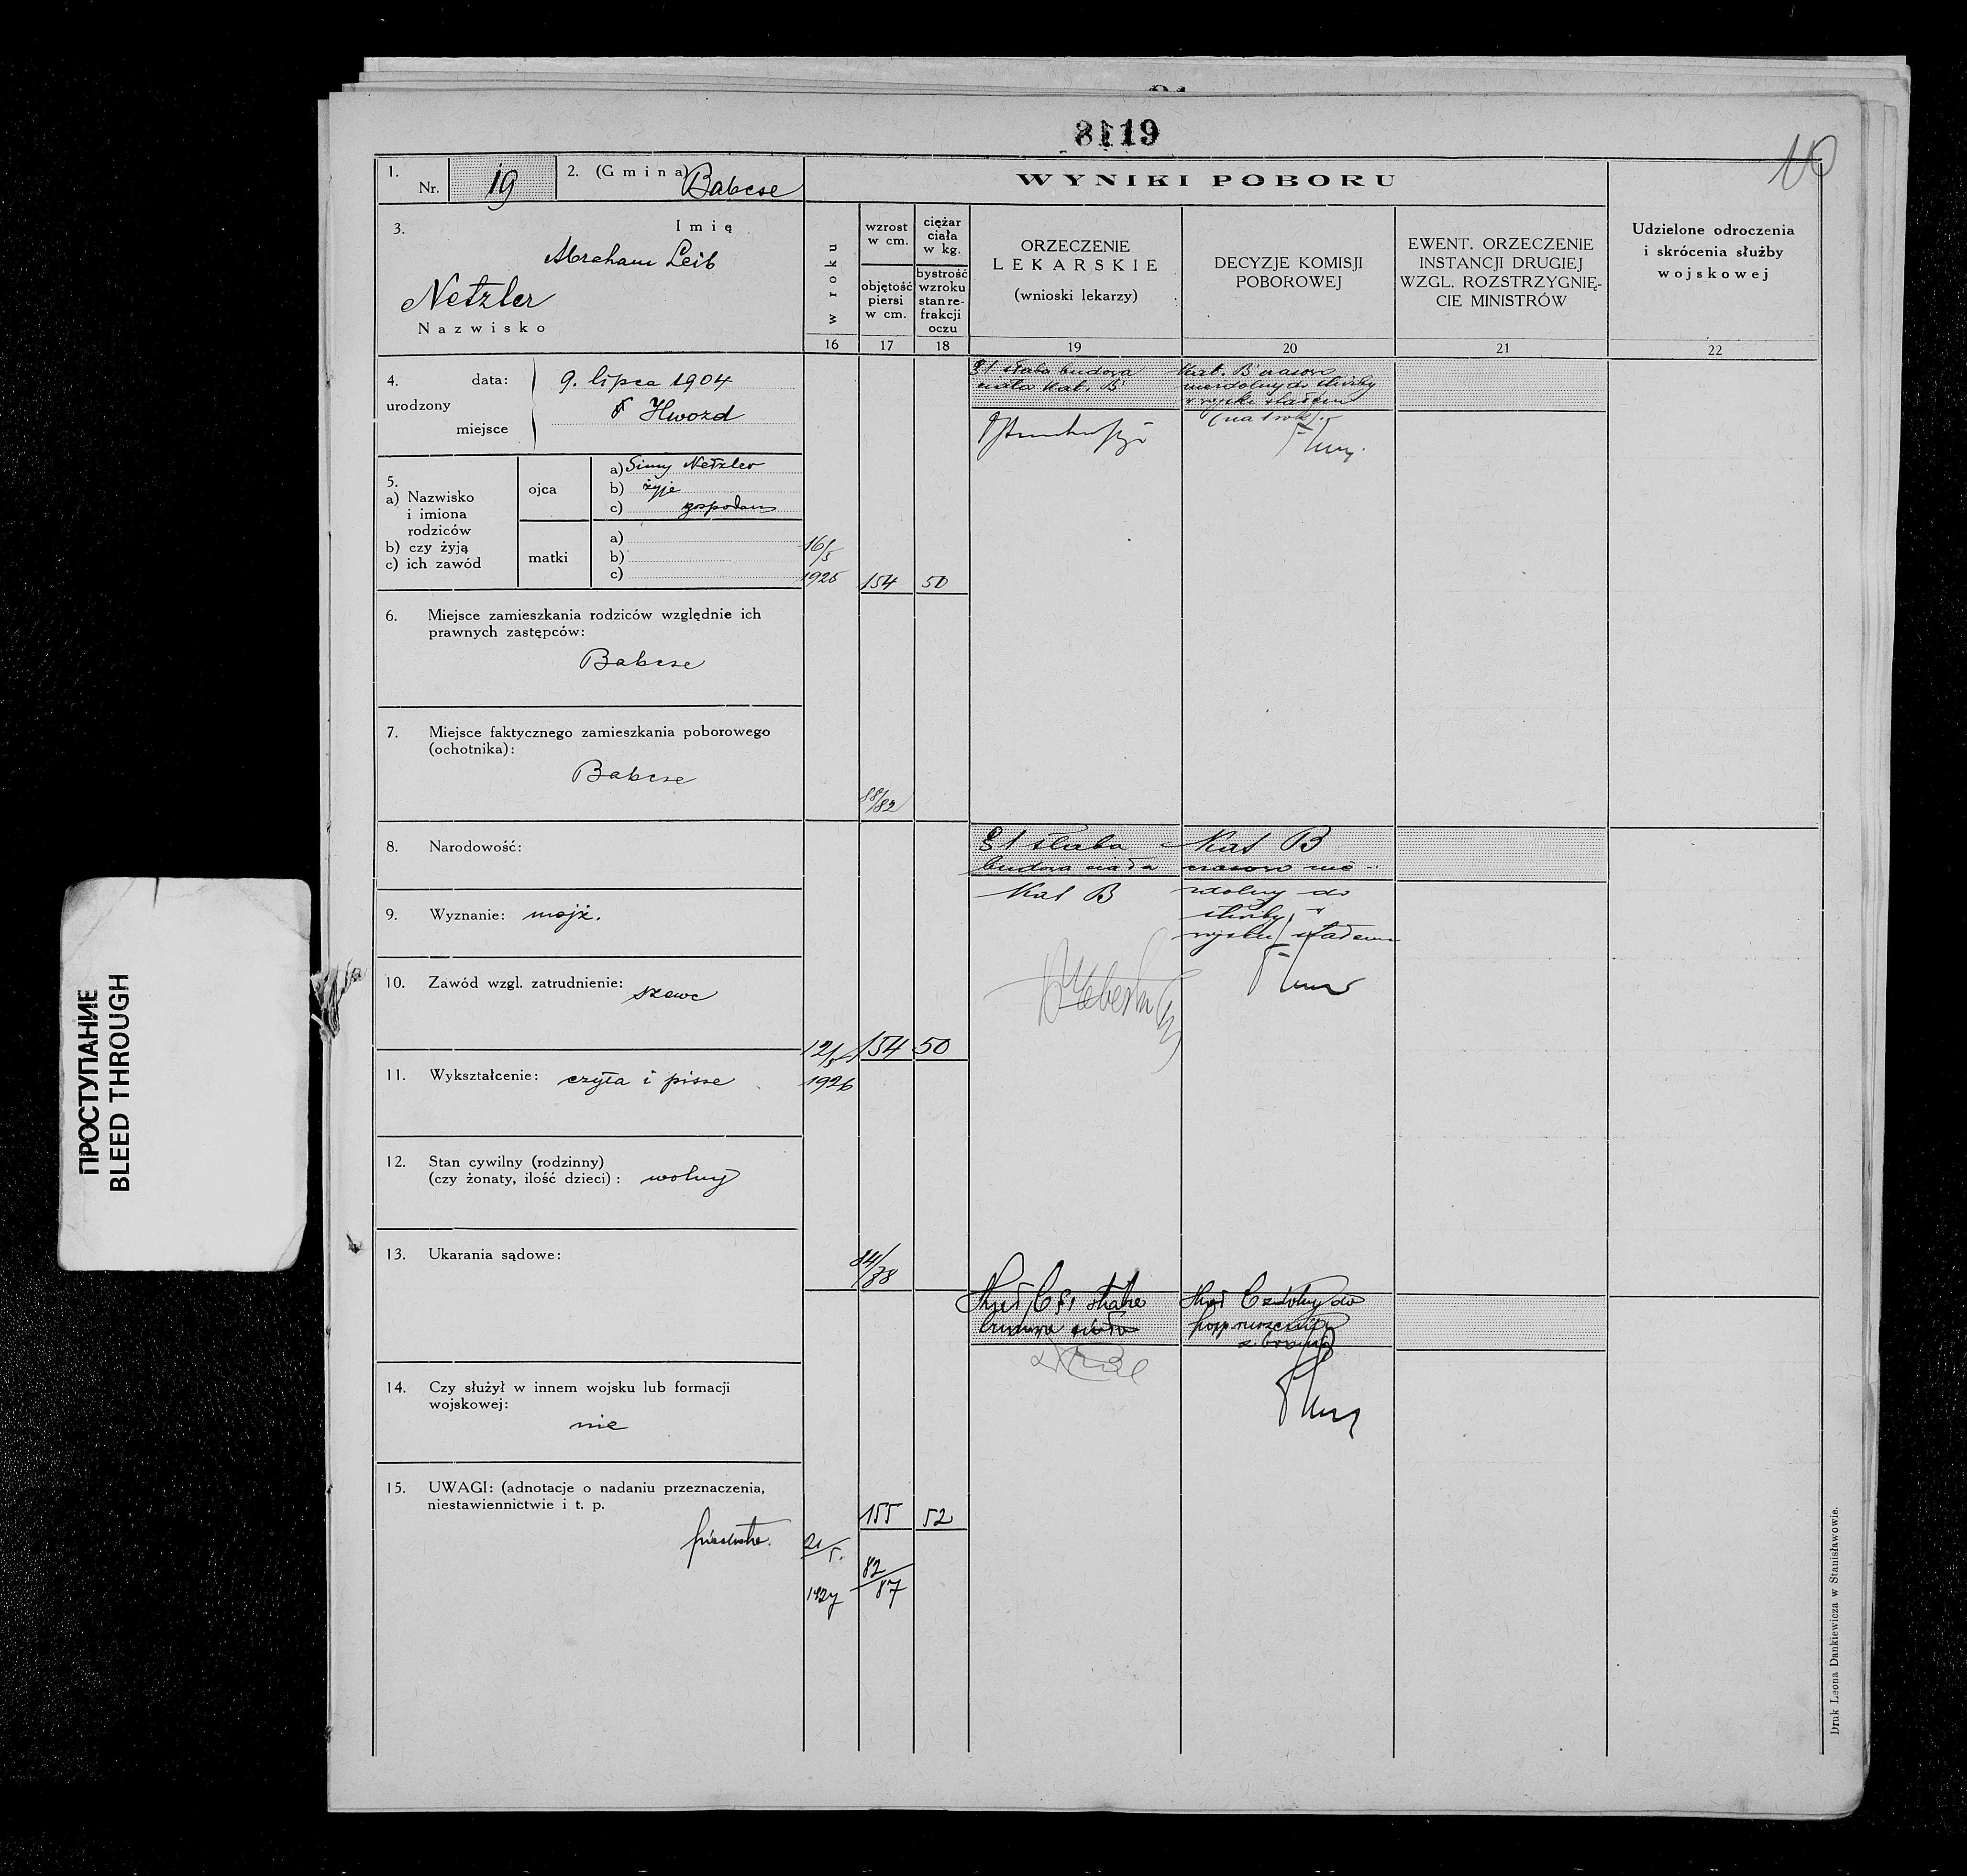 8119
10
1. Nr. 19
2. (Gmina) Babcse
WYNIKI POBORU
3. Imię
Abraham Leib
Netzler
Nazwisko
w roku
wzrost w cm.
objętość piersi w cm.
ciężar ciała w kg.
bystrość wzroku stan re-frakcji oczu
ORZECZENIE
LEKARSKIE
(wnioski lekarzy)
DECYZJE KOMISJI
POBOROWEJ
EWENT. ORZECZENIE
INSTANCJI DRUGIEJ
WZGL. ROZSTRZYGNIĘ-
CIE MINISTRÓW
Udzielone odroczenia
i skrócenia służby
wojskowej
16 17 18 19 20 21 22
4. urodzony
data: 9. lipca 1904
miejsce Hwozd
5.
a) Nazwisko
i imiona
rodziców
b) czy żyją
c) ich zawód
ojca
a) Simy Netzler
b) żyje
c) gospodarz
matki
a)
b)
c)
16/5
1925 154 50
88/82
§1 słaba budowa
ciała Kat. B
Kat. B czasowo
niezdolny do służby
w wojsku stałem
(na 1 rok).
6. Miejsce zamieszkania rodziców względnie ich
prawnych zastępców:
Babcse
7. Miejsce faktycznego zamieszkania poborowego
(ochotnika):
Babcse
8. Narodowość:
9. Wyznanie: mojż.
10. Zawód wzgl. zatrudnienie: szewc
§1 słaba
budowa ciała
Kat B
Kat B
czasowo nie-
zdolny do
służby w
wojsku stałem
12/5 154 50
1926
84/88
11. Wykształcenie: czyta i pisze
12. Stan cywilny (rodzinny)
(czy żonaty, ilość dzieci): wolny
13. Ukarania sądowe:
Kat C §1 słaba
budowa ciała
Kat C zdolny do
posp. ruszenia
z bronią
14. Czy służył w innem wojsku lub formacji
wojskowej:
nie
15. UWAGI: (adnotacje o nadaniu przeznaczenia,
niestawiennictwie i t. p.
piechota.
155 52
21/5.
1927
82/87
Druk Leona Dankiewicza w Stanisławowie.
ПРОСТУПАНИЕ
BLEED THROUGH